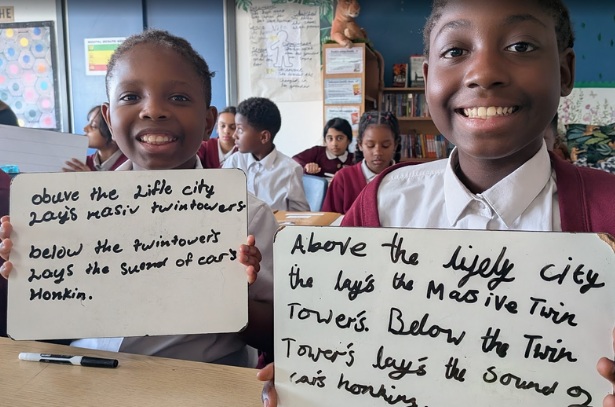 obuve the Lifle city
Lay's masiv twintowers
below the twintower's
Lay's the suond of car's
Honkin.
Above the lijely city
the lay's the Massive Twin
Tower's. Below the Twin
Tower's lay's the sound of
cars honking.